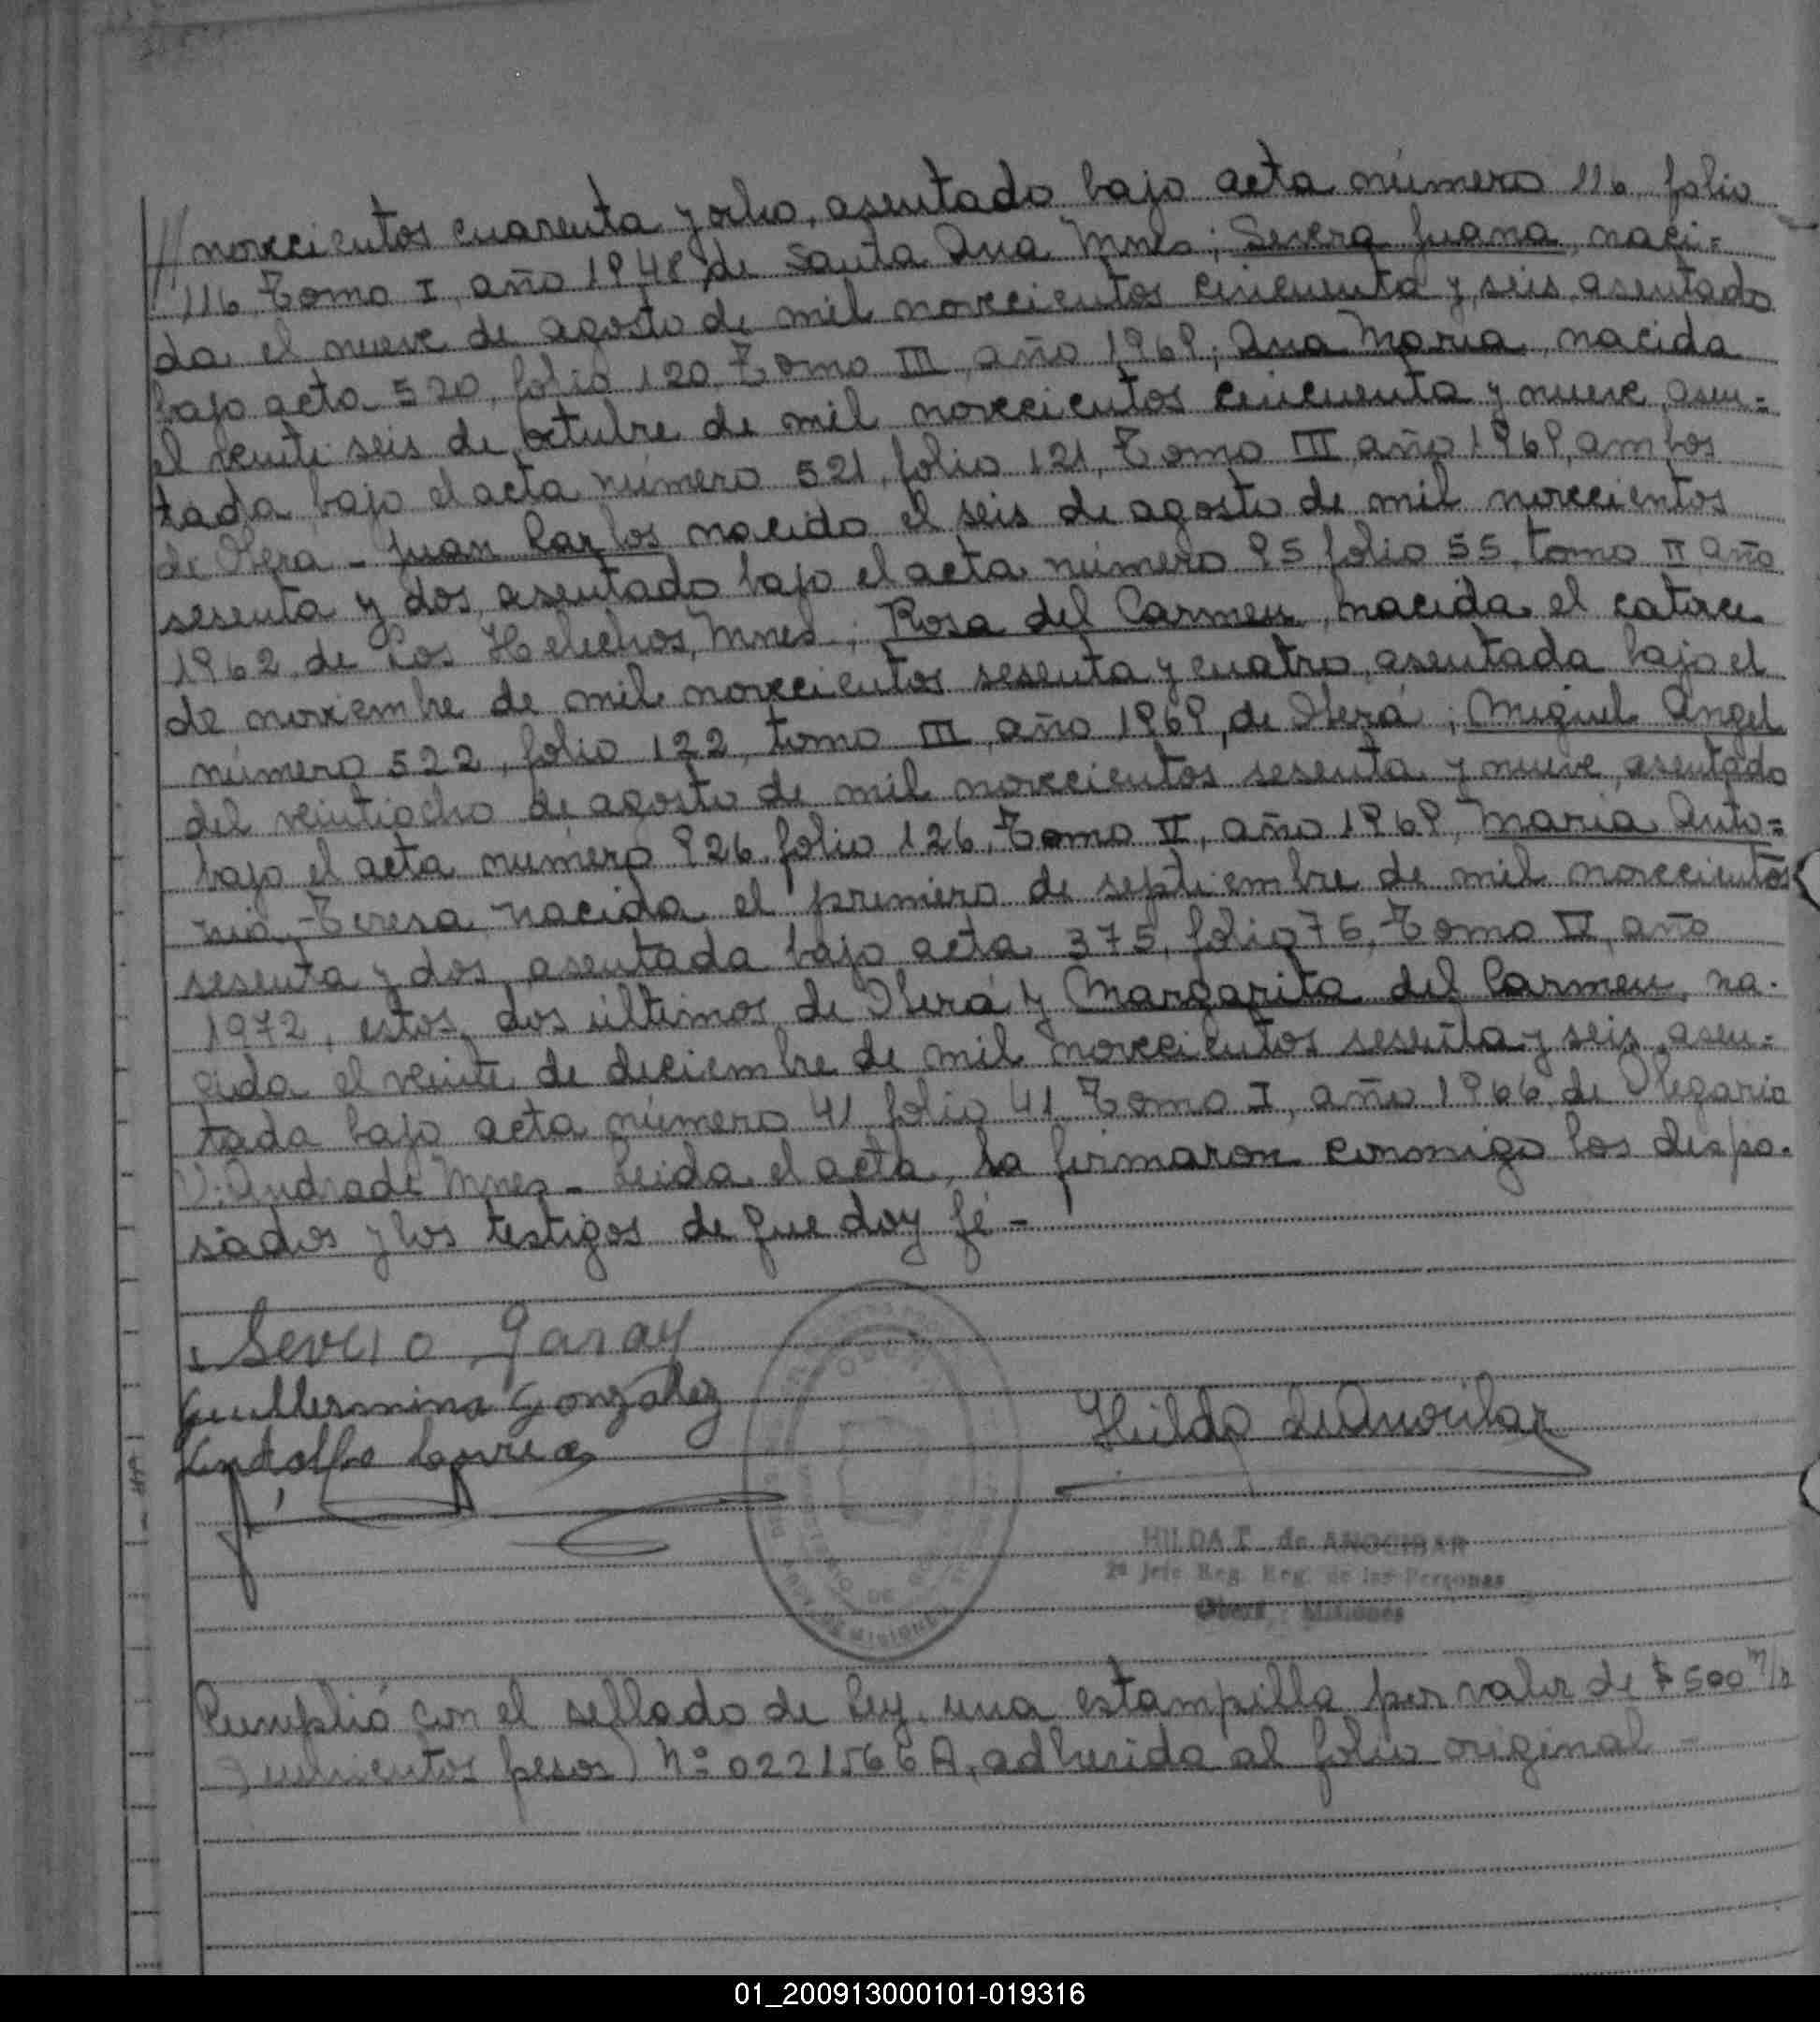 // novecientos cuarenta y ocho, asentado bajo acta número 116, folio
116, Tomo I, año 1948, de Santa Ana Mnes; Severa Juana, naci=
da el nueve de agosto de mil novecientos cincuenta y seis, asentado
bajo acta 520, folio 120, Tomo III, año 1969; Ana Maria, nacida
el veinti seis de octubre de mil novecientos cincuenta y nueve, asen=
tada bajo el acta número 521, folio 121, Tomo III, año 1969, ambos
de Obera - Juan Carlos nacido el seis de agosto de mil novecientos
sesenta y dos, asentado bajo el acta número 95 folio 55, tomo II año
1962, de Los Helechos, Mnes; Rosa del Carmen, nacida el catorce
de noviembre de mil novecientos sesenta y cuatro, asentada bajo el
número 522, folio 122, tomo III, año 1969, de Oberá; Miguel Angel
del veintiocho de agosto de mil novecientos sesenta y nueve, asentado
bajo el acta número 926, folio 126, Tomo V, año 1969, Maria Anto=
nia Teresa nacida el primero de septiembre de mil novecientos
sesenta y dos, asentada bajo acta 375, folio 75, Tomo II, año
1972, estos dos últimos de Oberá y Margarita del Carmen, na-
cida el veinte de diciembre de mil novecientos sesenta y seis, asen=
tada bajo acta número 41 folio 41 Tomo I, año 1966, de Olegario
V. Andrade Mnes - Leida el acta, la firmaron conmigo los despo-
sados y los testigos de que doy fé -
Severo Garay
Guillermina Gonzalez
Hilda de Anocibar
HILDA T. de ANOCIBAR
2ª Jefe Reg. Reg. de las Personas
Oberá, Misiones
Cumplió con el sellado de Ley, una estampilla por valor de $ 500 m/n
Quinientos pesos) Nº 0221566 A, adherida al folio original -
01_200913000101-019316